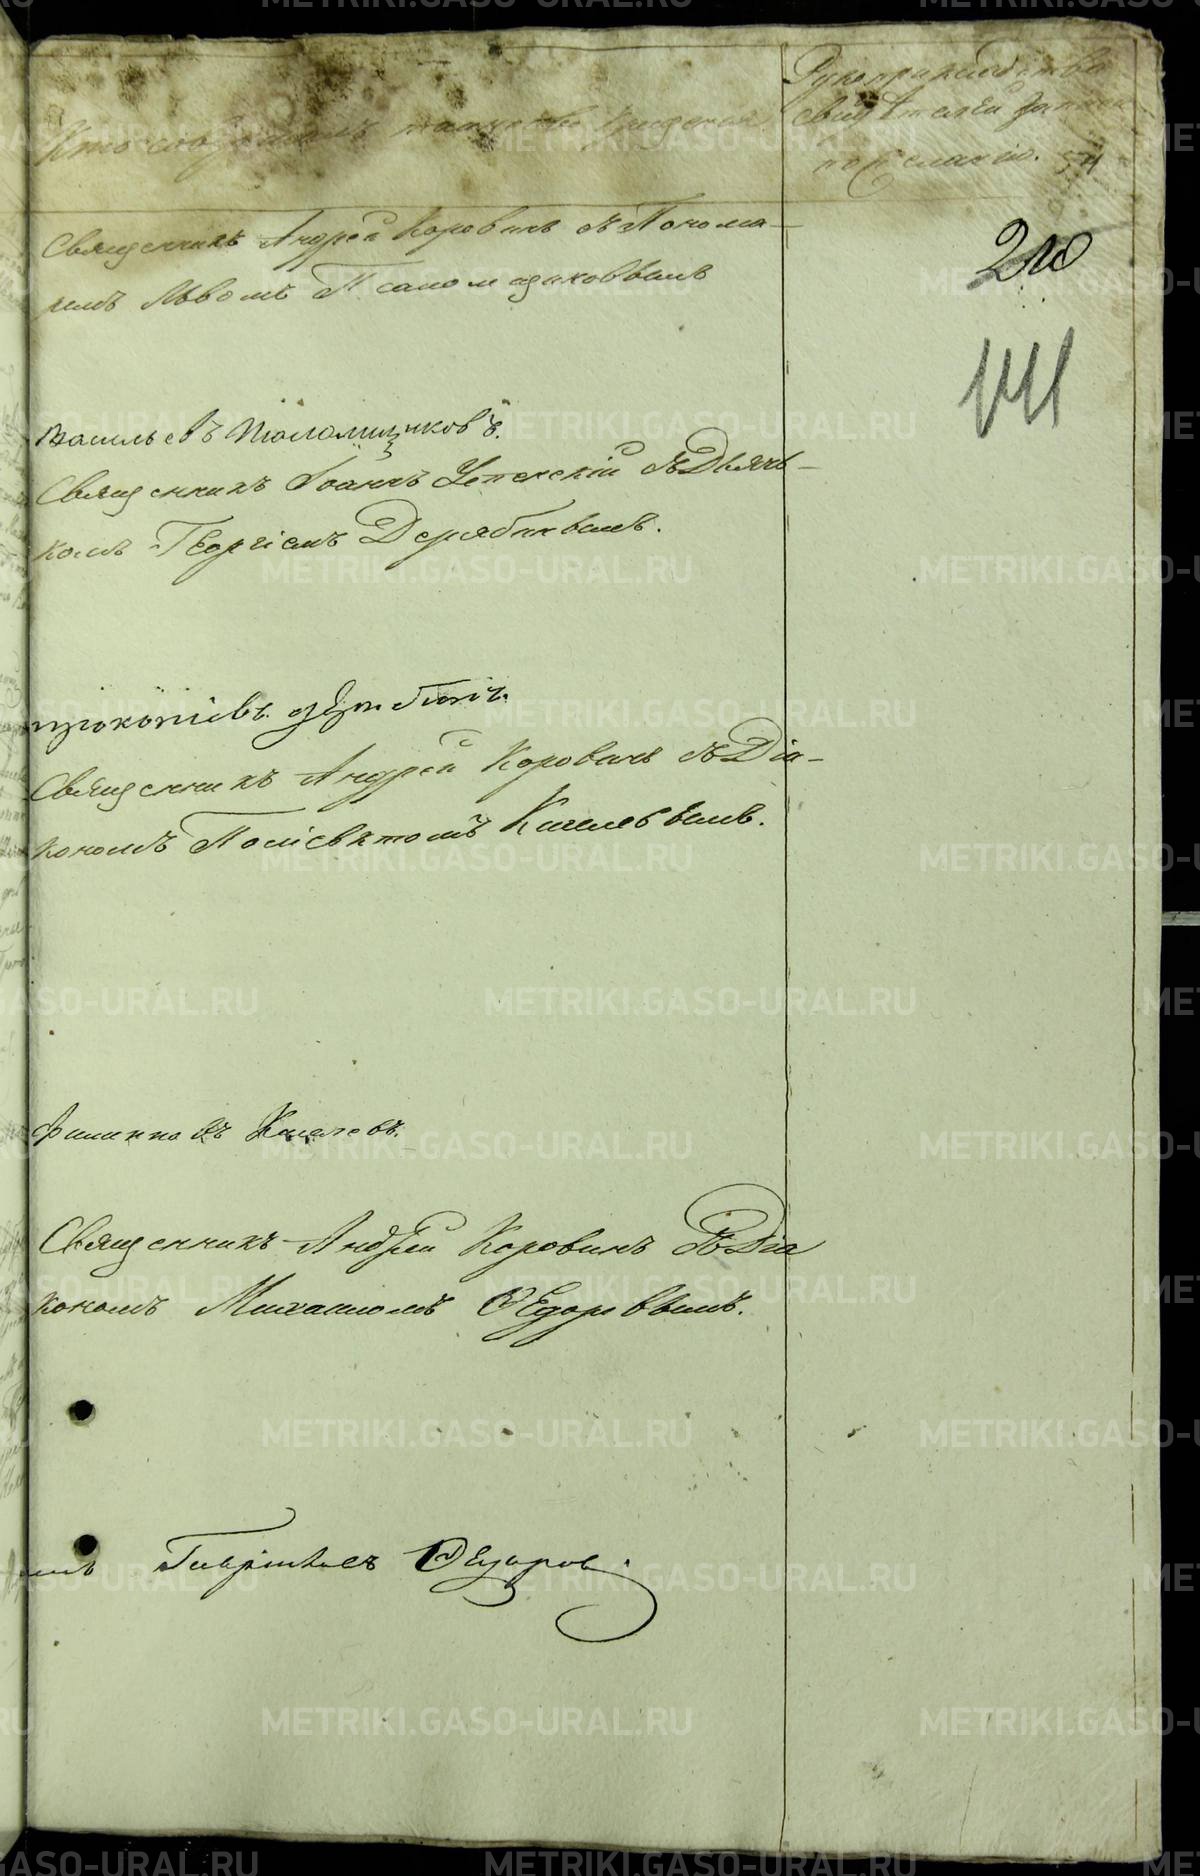 Кто совершалъ таинство крещенія
Рукоприкладство
свидѣтелей записи
по желанію. 54
Священникъ Андрей Коровинъ съ Понома-
ремъ Львомъ Псаломщиковымъ
210
141
Васильевъ Псаломщиковъ.
Священникъ Іоаннъ Успенскій съ Дьяч-
комъ Георгіемъ Дерябинымъ.
Прокопіевъ Дерябинъ.
Священникъ Андрей Коровинъ съ Діа-
кономъ Поліевктомъ Киселевымъ.
Филипповъ Киселевъ.
Священникъ Андрей Коровинъ съ Діа
кономъ Михаиломъ Ѳедоровымъ.
Гавріиловъ Ѳедоров